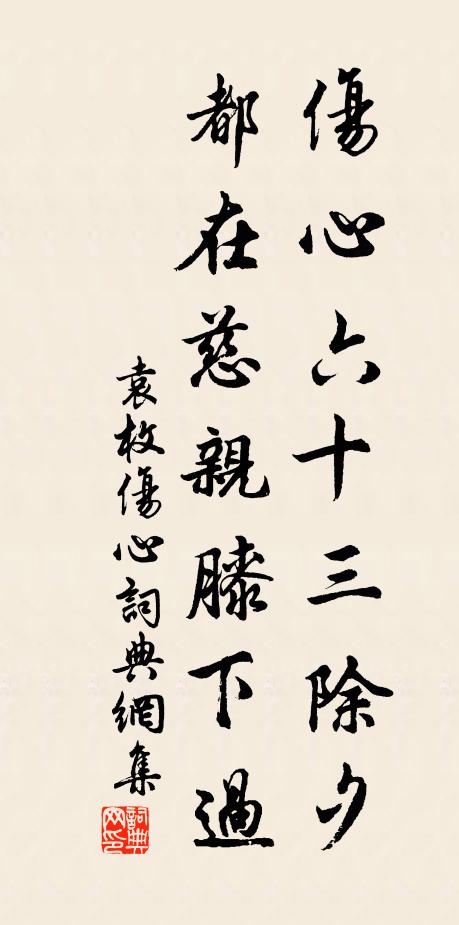 傷心六十三除夕
都在慈親膝下過
袁枚傷心詞典網集
詞典网印